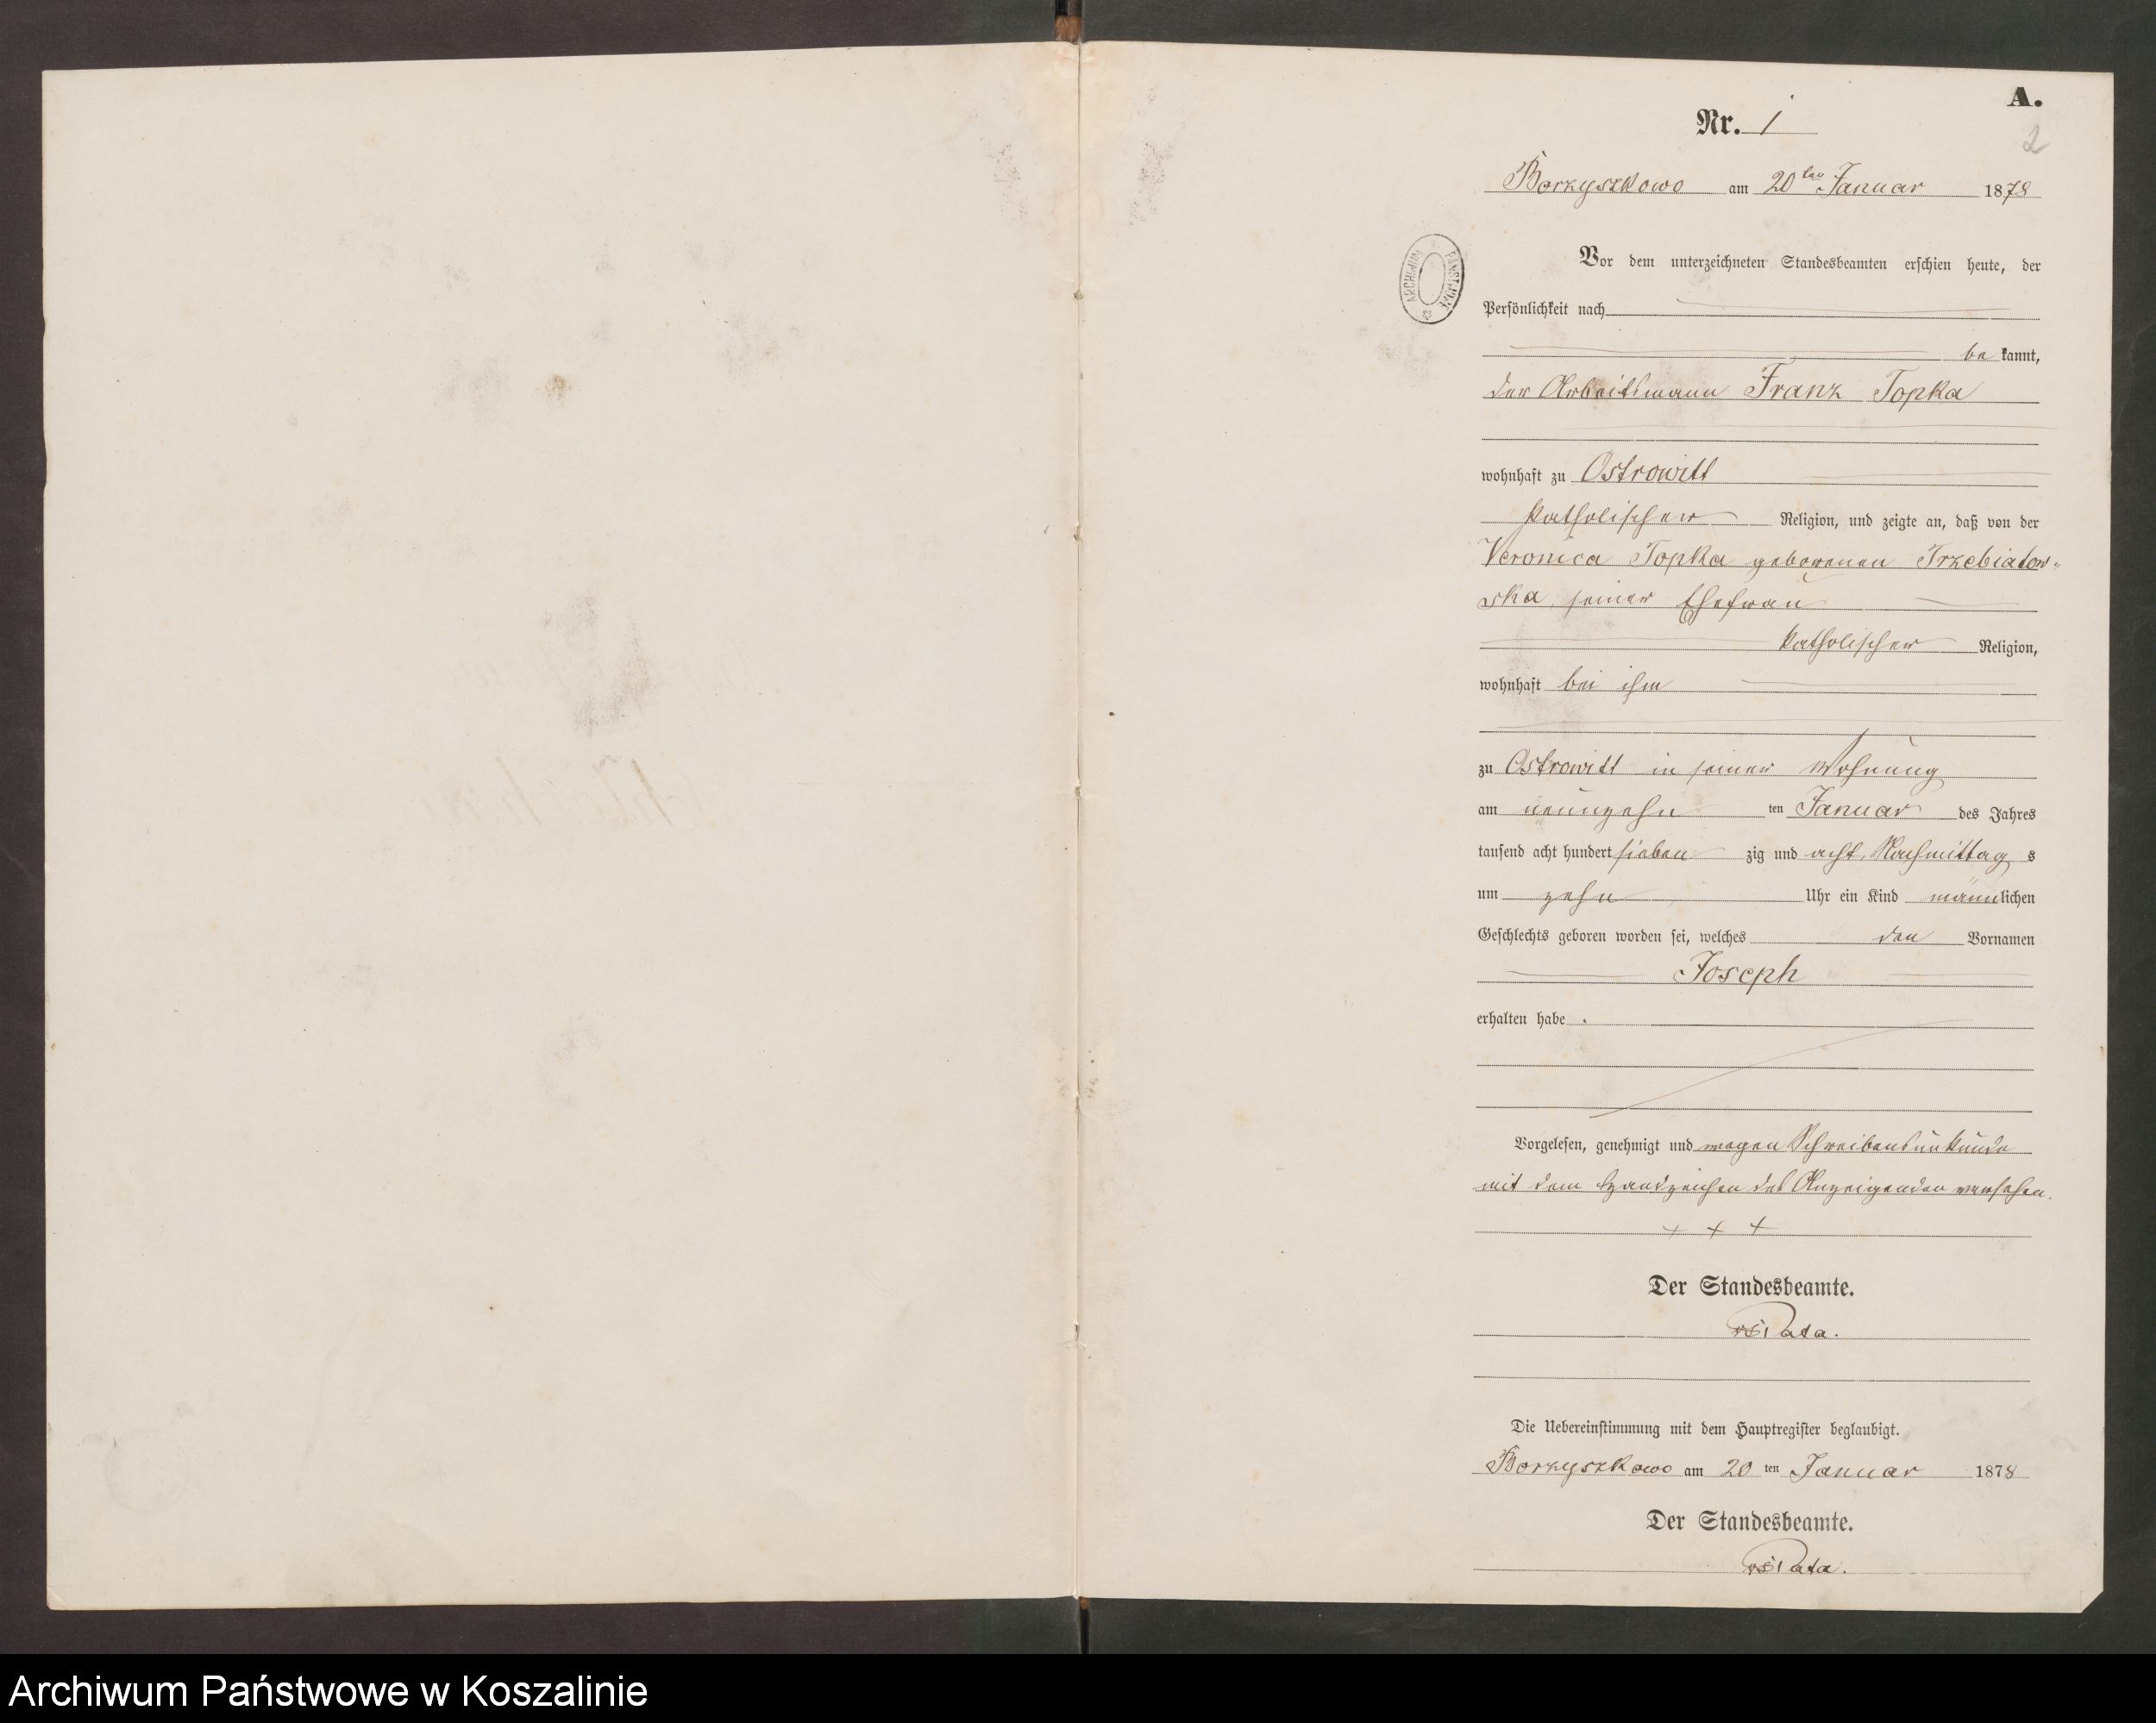 A.
Nr. 1
2
Borzyszkowo am 20ten Januar 1878
ARCHIWUM PAŃSTWOWE
Vor dem unterzeichneten Standesbeamten erschien heute, der
Persönlichkeit nach
be kannt,
der Arbeitsmann Franz Topka
wohnhaft zu Ostrowitt
katholischer Religion, und zeigte an, daß von der
Veronica Topka geborenen Trzebiatow-
ska, seiner Ehefrau
katholischer Religion,
wohnhaft bei ihm
zu Ostrowitt in seiner Wohnung
am neunzehn ten Januar des Jahres
tausend acht hundert sieben zig und acht, Nachmittag s
um zehn Uhr ein Kind männlichen
Geschlechts geboren worden sei, welches den Vornamen
Joseph
erhalten habe.
Vorgelesen, genehmigt und wegen Schreibensunkunde
mit dem Handzeichen des Anzeigenden versehen.
+ + +
Der Standesbeamte.
Pata.
Die Uebereinstimmung mit dem Hauptregister beglaubigt.
Borzyszkowo am 20 ten Januar 1878
Der Standesbeamte.
Pata.
Archiwum Państwowe w Koszalinie